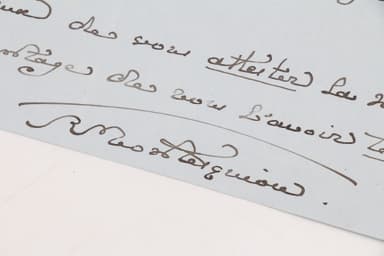 de vous attester la
de vous l'avoir
RMontesquiou.